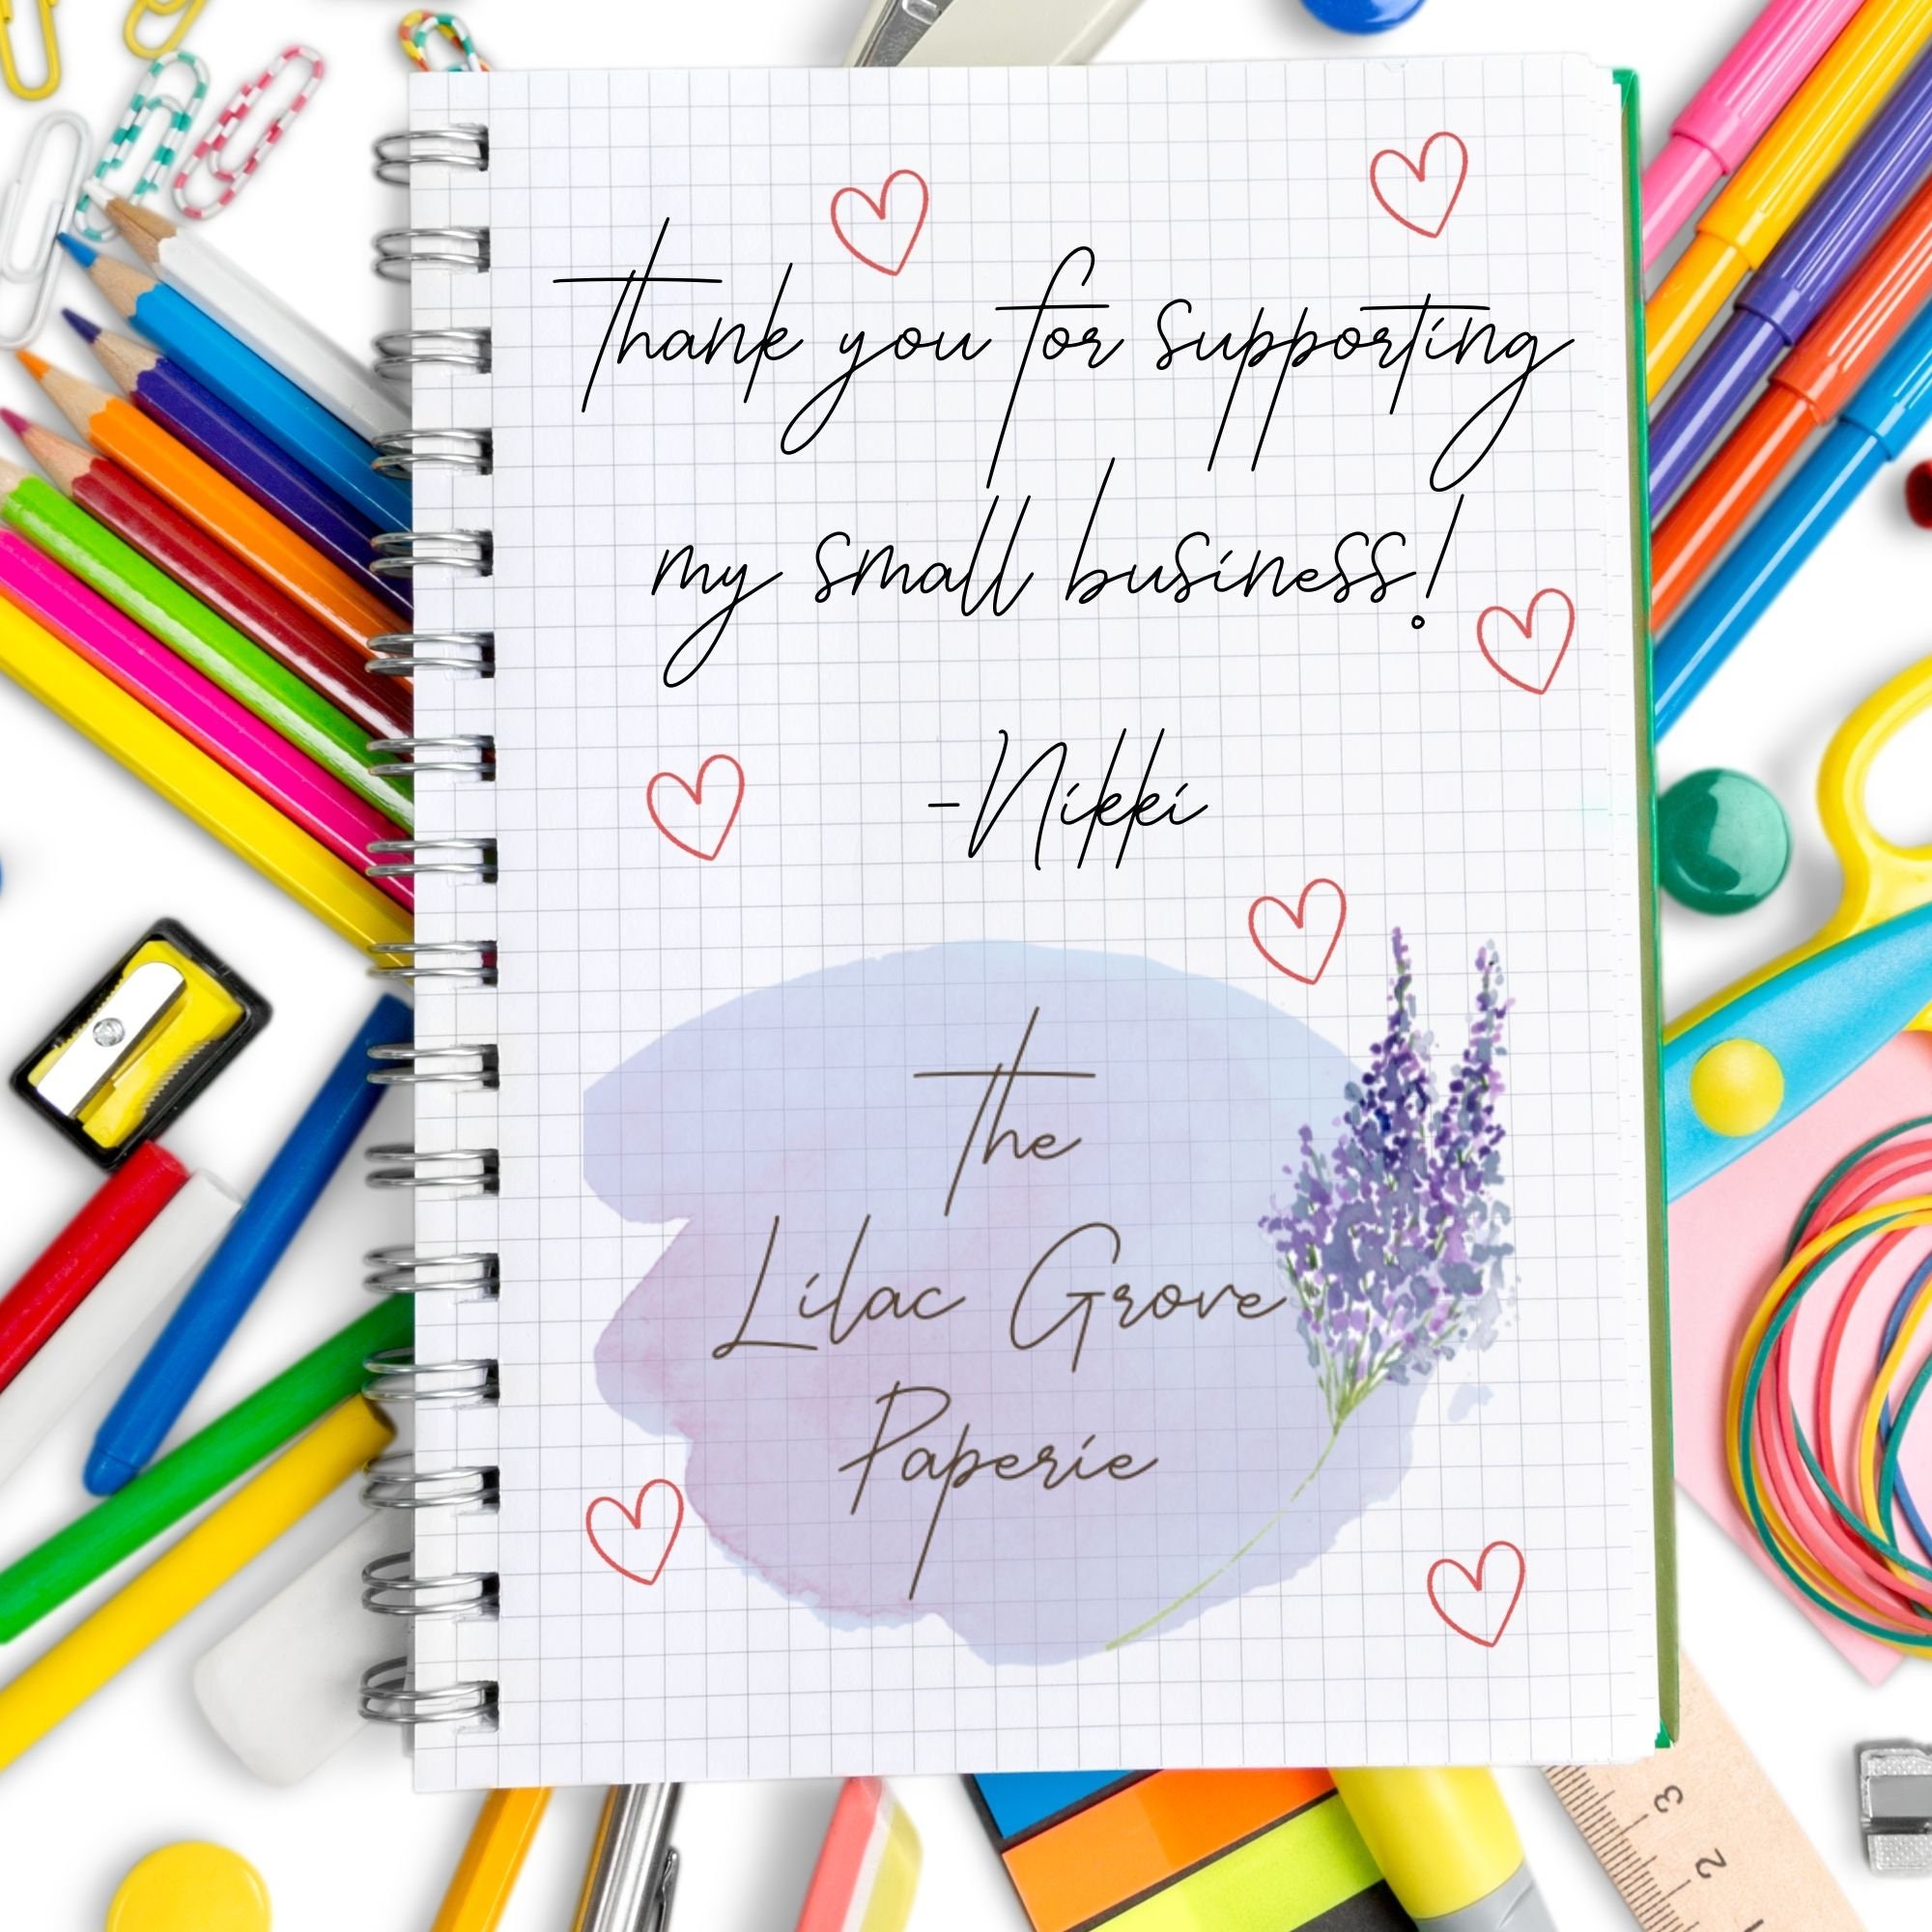 Thank you for supporting
my small business!
-Nikki
The
Lilac Grove
Paperie
3
2